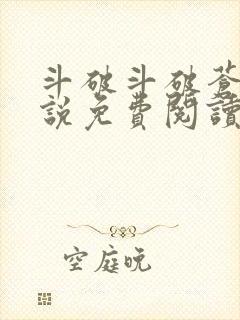 斗破斗破蒼
說免費閱讀
空庭晚